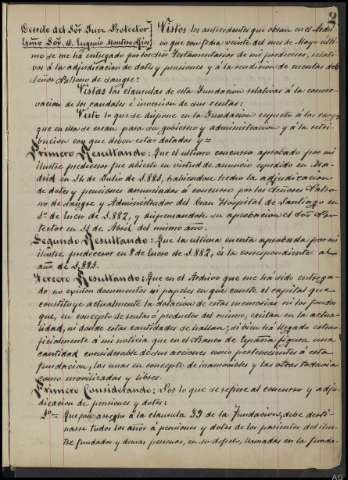 2
Decreto del Sor Juez Protector
Exmo Sor D. Eugenio Montero Rios
Vistos los antecedentes que obran en el Archi
que con fecha veinte del mes de Mayo últi
mo se me ha entregado por los Testamentarios de mi predecesor, relati
vos á la adjudicacion de dotes y pensiones y á la rendicion de cuentas del
Señor Patrono de sangre:
Vistas las cláusulas de esta Fundacion relativas á la conser
vacion de los caudales é inversion de sus rentas:
Visto lo que se dispone en la Fundacion respecto á los
que en ella se crean para su gobierno y administracion y á la retri
bucion con que deben estar dotados y =
Primero Resultando: Que el último concurso aprobado por mi
ilustre predecesor fue abierto en virtud de anuncio espedido en Ma
drid en 14 de Julio de 1.881, habiéndose hecho la adjudicacion
de dotes y pensiones anunciadas á concurso por los Señores Patro
no de sangre y Administrador del Gran Hospital de Santiago en
1º de Enero de 1.882, y dispensándole su aprobacion el Sor Pro
tector en 11 de Abril del mismo año.
Segundo Resultando: Que la última cuenta aprobada por mi
ilustre predecesor en 9 de Enero de 1.882, es la correspondiente al
año de 1.881.
Tercero Resultando: Que en el Archivo que me ha sido entrega
do, no existen documentos ni papeles en que conste el capital que
constituye actualmente la dotacion de estas memorias ni los fondos
que, en concepto de rentas ó productos del mismo, existan en la actua
lidad, ni donde estas cantidades se hallan; si bien ha llegado estrao
ficialmente á mi noticia que en el Banco de España figura una
cantidad considerable de sus acciones como pertenecientes á esta
fundacion, las unas en concepto de inamovibles y las otras todavia
como movilizadas y libres.
Primero Considerando: Por lo que se refiere al concurso y adju
dicacion de pensiones y dotes:
1º = Que con arreglo á la cláusula 39 de la Fundacion, debe desti
narse todos los años á pensiones y dotes de los parientes del ilus
tre fundador y demas personas, en su defecto, llamadas en la funda-